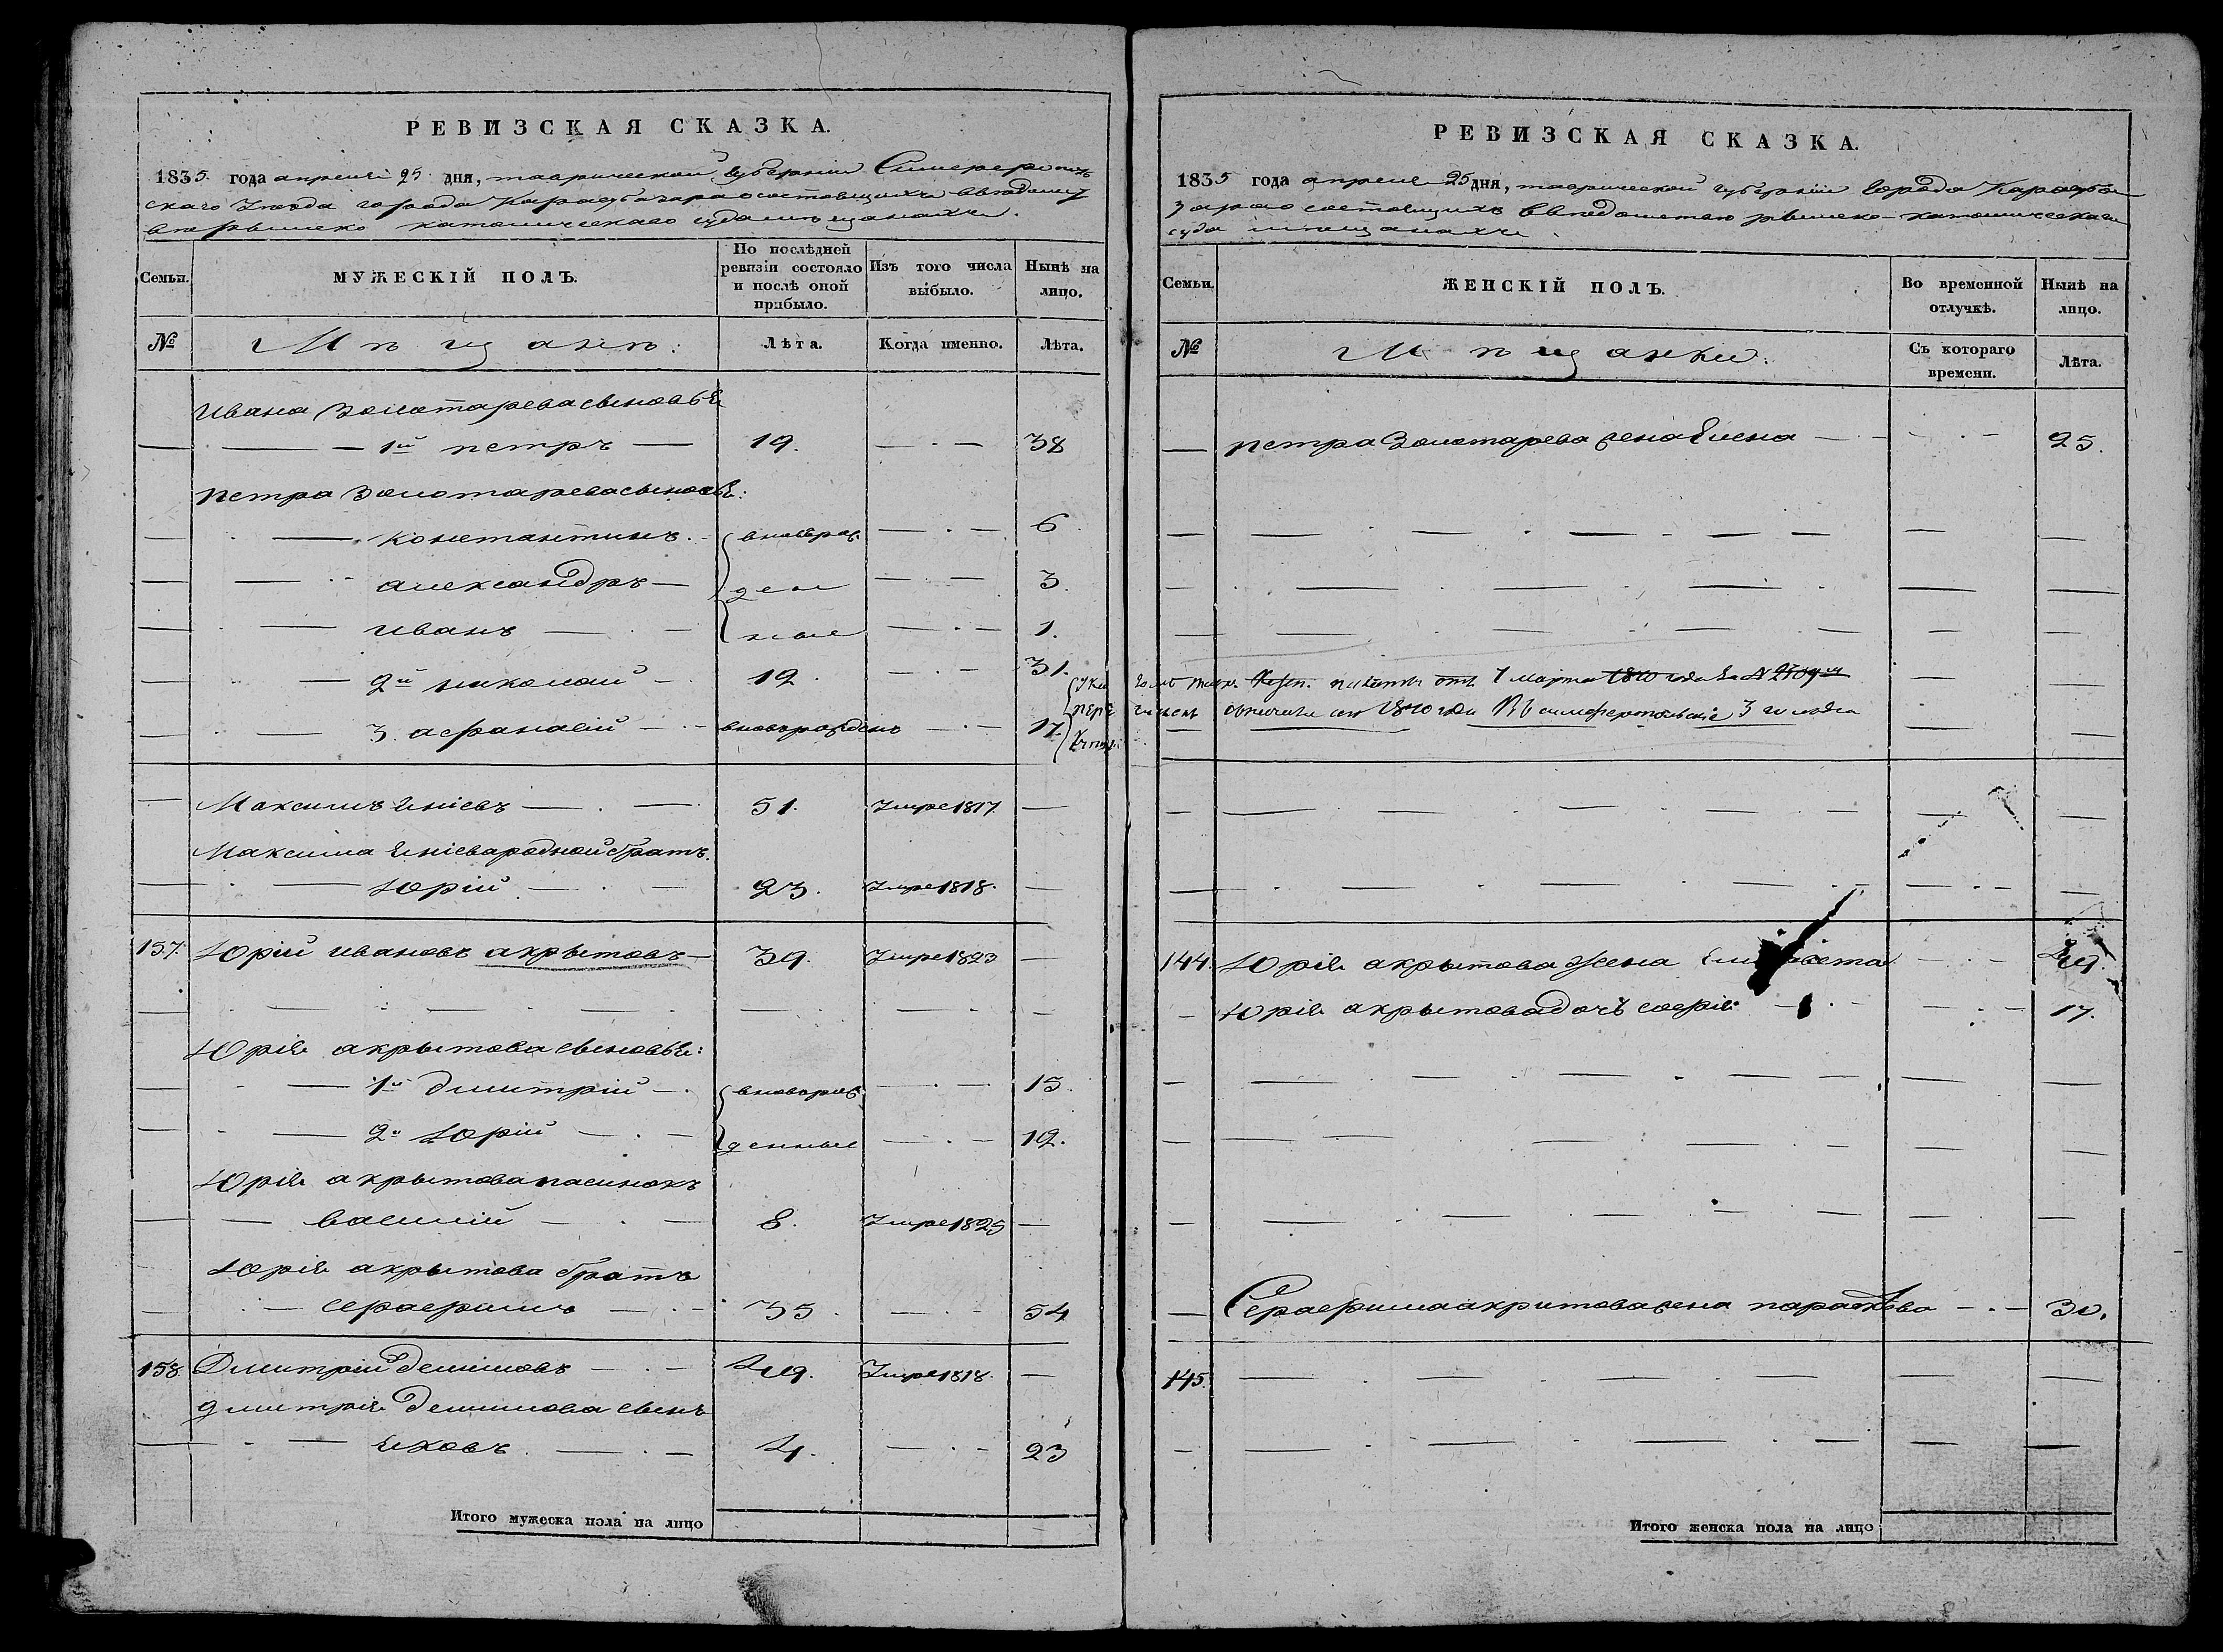 РЕВИЗСКАЯ СКАЗКА.
1835 года апреля 25 дня, таврической губернии Симферополь
скаго уезда города Карасубазара о состоящихъ
римско католическаго суда мещанахъ.
Семьи.
МУЖЕСКІЙ ПОЛЪ.
По послѣдней ревизіи состояло и послѣ оной прибыло.
Изъ того числа выбыло.
Нынѣ на лицо.
№
Мѣщанѣ:
Лѣта.
Когда именно.
Лѣта.
Ивана Золотарева сыновья
— 1й петръ — 19. — . — 38
петра Золотарева сыновья:
— константинъ. вновь рож — . — 6
— александръ — ден — . — 3.
— иванъ — ные — . — 1.
— 2й николай — 12. — . — 31.
— 3. афанасій — вновь рожденъ — . — 17
— Максимъ — 51. Умре 1817. —
Максима родной братъ.
— Юрій — 23. Умре 1818. —
157. Юрій ивановъ акрытовъ — 39. Умре 1823 —
Юрія акрытова сыновья:
— 1й дмитрій — вновь рож — . — 15.
— 2й Юрій — денные — . — 12.
Юрія акрытова пасинокъ
— василій — 8. Умре 1825 —
Юрія акрытова братъ
— серафимъ — 35. — . — 54
158. Дмитрій Демимовъ — 49. Умре 1818. —
дмитрія Демимова сынъ
— яковъ. — 4. — . — 23
Итого мужеска пола на лицо
РЕВИЗСКАЯ СКАЗКА.
1835 года апреля 25 дня, таврической губерніи города Карасуба
зара о состоящихъ в ведомстве римско-католическаго
суда мещанахъ.
Семьи.
ЖЕНСКІЙ ПОЛЪ.
Во временной отлучкѣ.
Нынѣ на лицо.
№
Мѣщанки:
Съ котораго времени.
Лѣта.
— петра Золотарева жена Елена — . — 25.
7 марта 1840 года за №
1840 года въ симферопольскіе 3 гильдіи
144. Юрія акрытова жена — . — 49.
— Юрія акрытова дочь софія — . — 17.
— Серафима акритова жена — . — 30.
145.
Итого женска пола на лицо